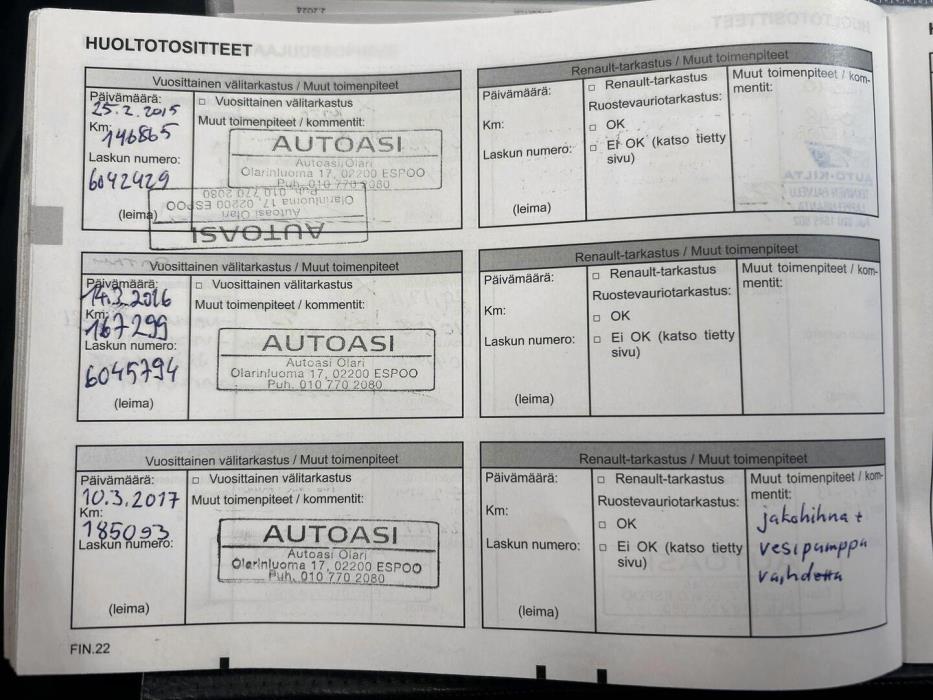 HUOLTOTOSITTEET
Vuosittainen välitarkastus / Muut toimenpiteet
Päivämäärä:
25.2.2015
Km:
146865
Laskun numero:
6042429
(leima)
□ Vuosittainen välitarkastus
Muut toimenpiteet / kommentit:
AUTOASI
Autoasi Olari
Olarinluoma 17, 02200 ESPOO
Puh. 010 770 2080
Puh. 010 770 2080
Olarinluoma 17, 02200 ESPOO
Autoasi Olari
AUTOASI
Renault-tarkastus / Muut toimenpiteet
Päivämäärä:
Km:
Laskun numero:
(leima)
□ Renault-tarkastus
Ruostevauriotarkastus:
□ OK
□ Ei OK (katso tietty
sivu)
Muut toimenpiteet / kom-
mentit:
Vuosittainen välitarkastus / Muut toimenpiteet
Päivämäärä:
14.3.2016
Km:
167299
Laskun numero:
6045794
(leima)
□ Vuosittainen välitarkastus
Muut toimenpiteet / kommentit:
AUTOASI
Autoasi Olari
Olarinluoma 17, 02200 ESPOO
Puh. 010 770 2080
Renault-tarkastus / Muut toimenpiteet
Päivämäärä:
Km:
Laskun numero:
(leima)
□ Renault-tarkastus
Ruostevauriotarkastus:
□ OK
□ Ei OK (katso tietty
sivu)
Muut toimenpiteet / kom-
mentit:
Vuosittainen välitarkastus / Muut toimenpiteet
Päivämäärä:
10.3.2017
Km:
185093
Laskun numero:
(leima)
□ Vuosittainen välitarkastus
Muut toimenpiteet / kommentit:
AUTOASI
Autoasi Olari
Olarinluoma 17, 02200 ESPOO
Puh. 010 770 2080
Renault-tarkastus / Muut toimenpiteet
Päivämäärä:
Km:
Laskun numero:
(leima)
□ Renault-tarkastus
Ruostevauriotarkastus:
□ OK
□ Ei OK (katso tietty
sivu)
Muut toimenpiteet / kom-
mentit:
jakohihna +
vesipumppu
FIN.22